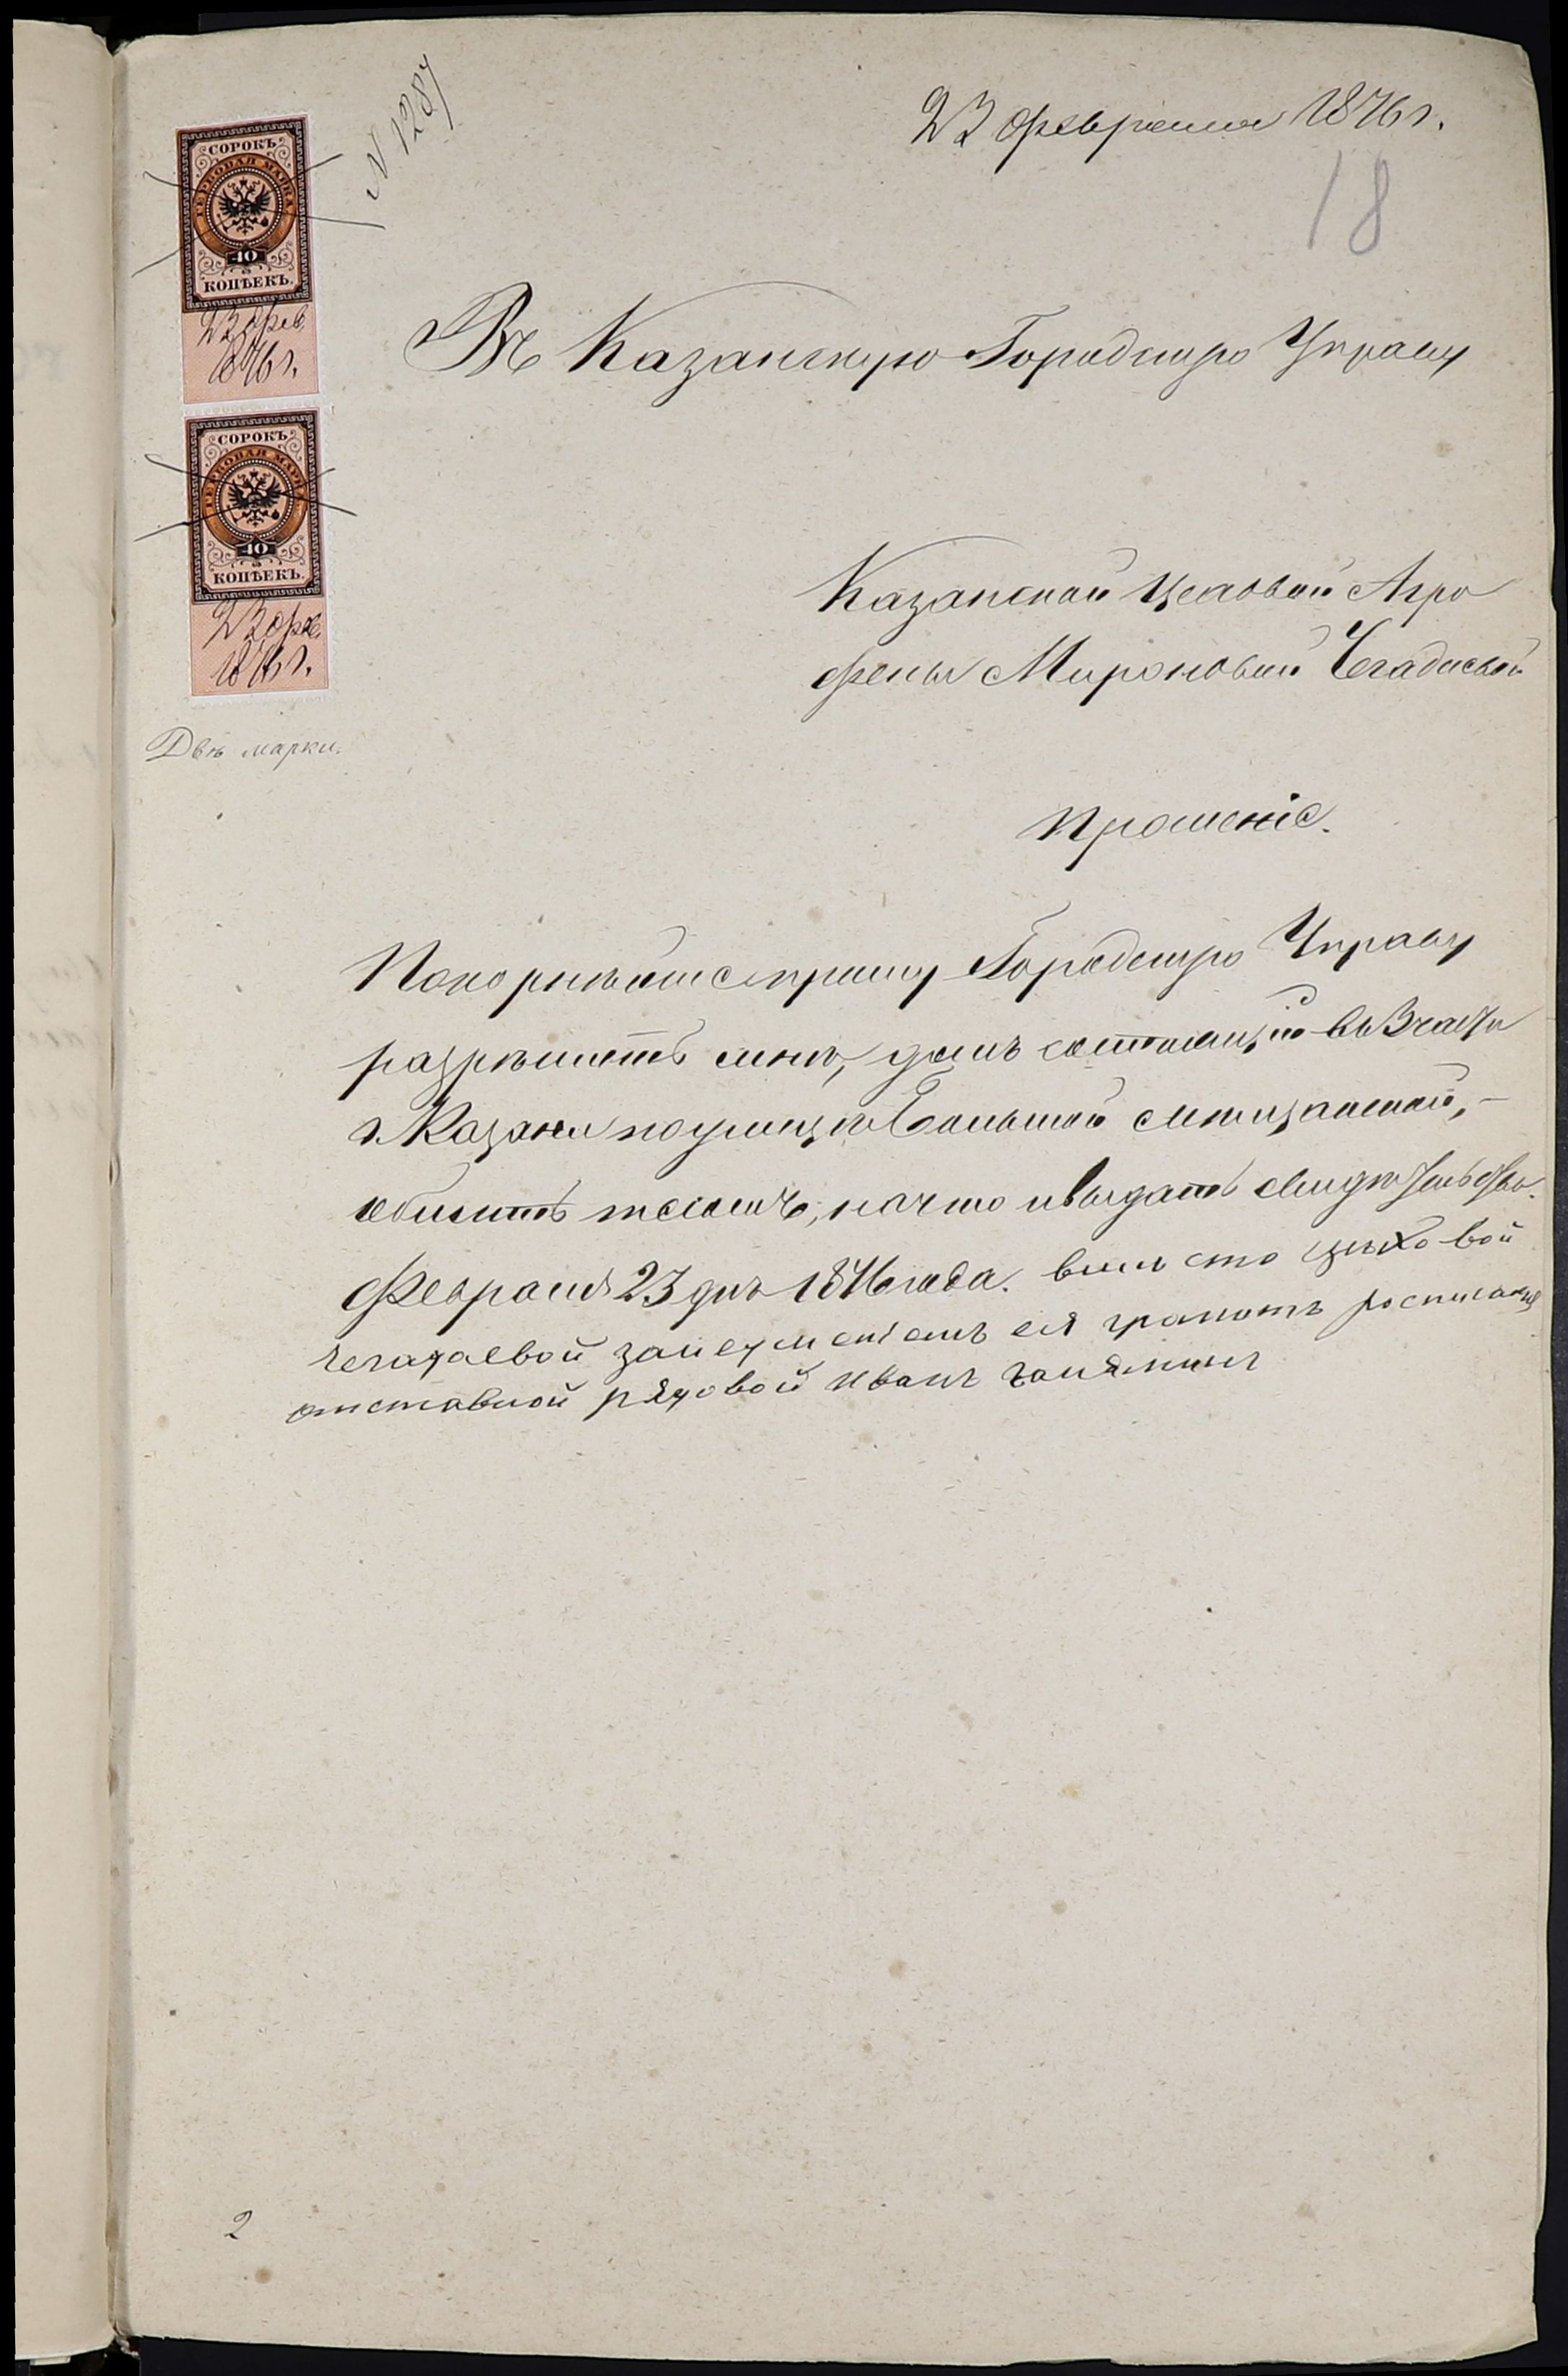 N 1287
23 февраля 1876 г.
18
СОРОКЪ
ГЕРБОВАЯ МАРКА
40
КОПѢЕКЪ.
23 фев.
1876 г.
СОРОКЪ
ГЕРБОВАЯ МАРКА
40
КОПѢЕКЪ.
23 фев.
1876 г.
Двѣ марки.
Въ Казанскую Городскую Управу
Казанской Цеховой Агро
фены Мироновой Чегадаевой
Прошеніе.
Покорнѣйше прошу Городскую Управу
разрѣшить мнѣ, домъ состоящій въ 3 части
г. Казани по улицѣ Большой мѣщанской,
обшить тесомъ, на что и выдать свидѣтельство.
Февраля 23 дня 1876 года. вместо цѣховой
чегадаевой за неумѣніемъ ея грамотѣ росписался
отставной рядовой Иванъ
2